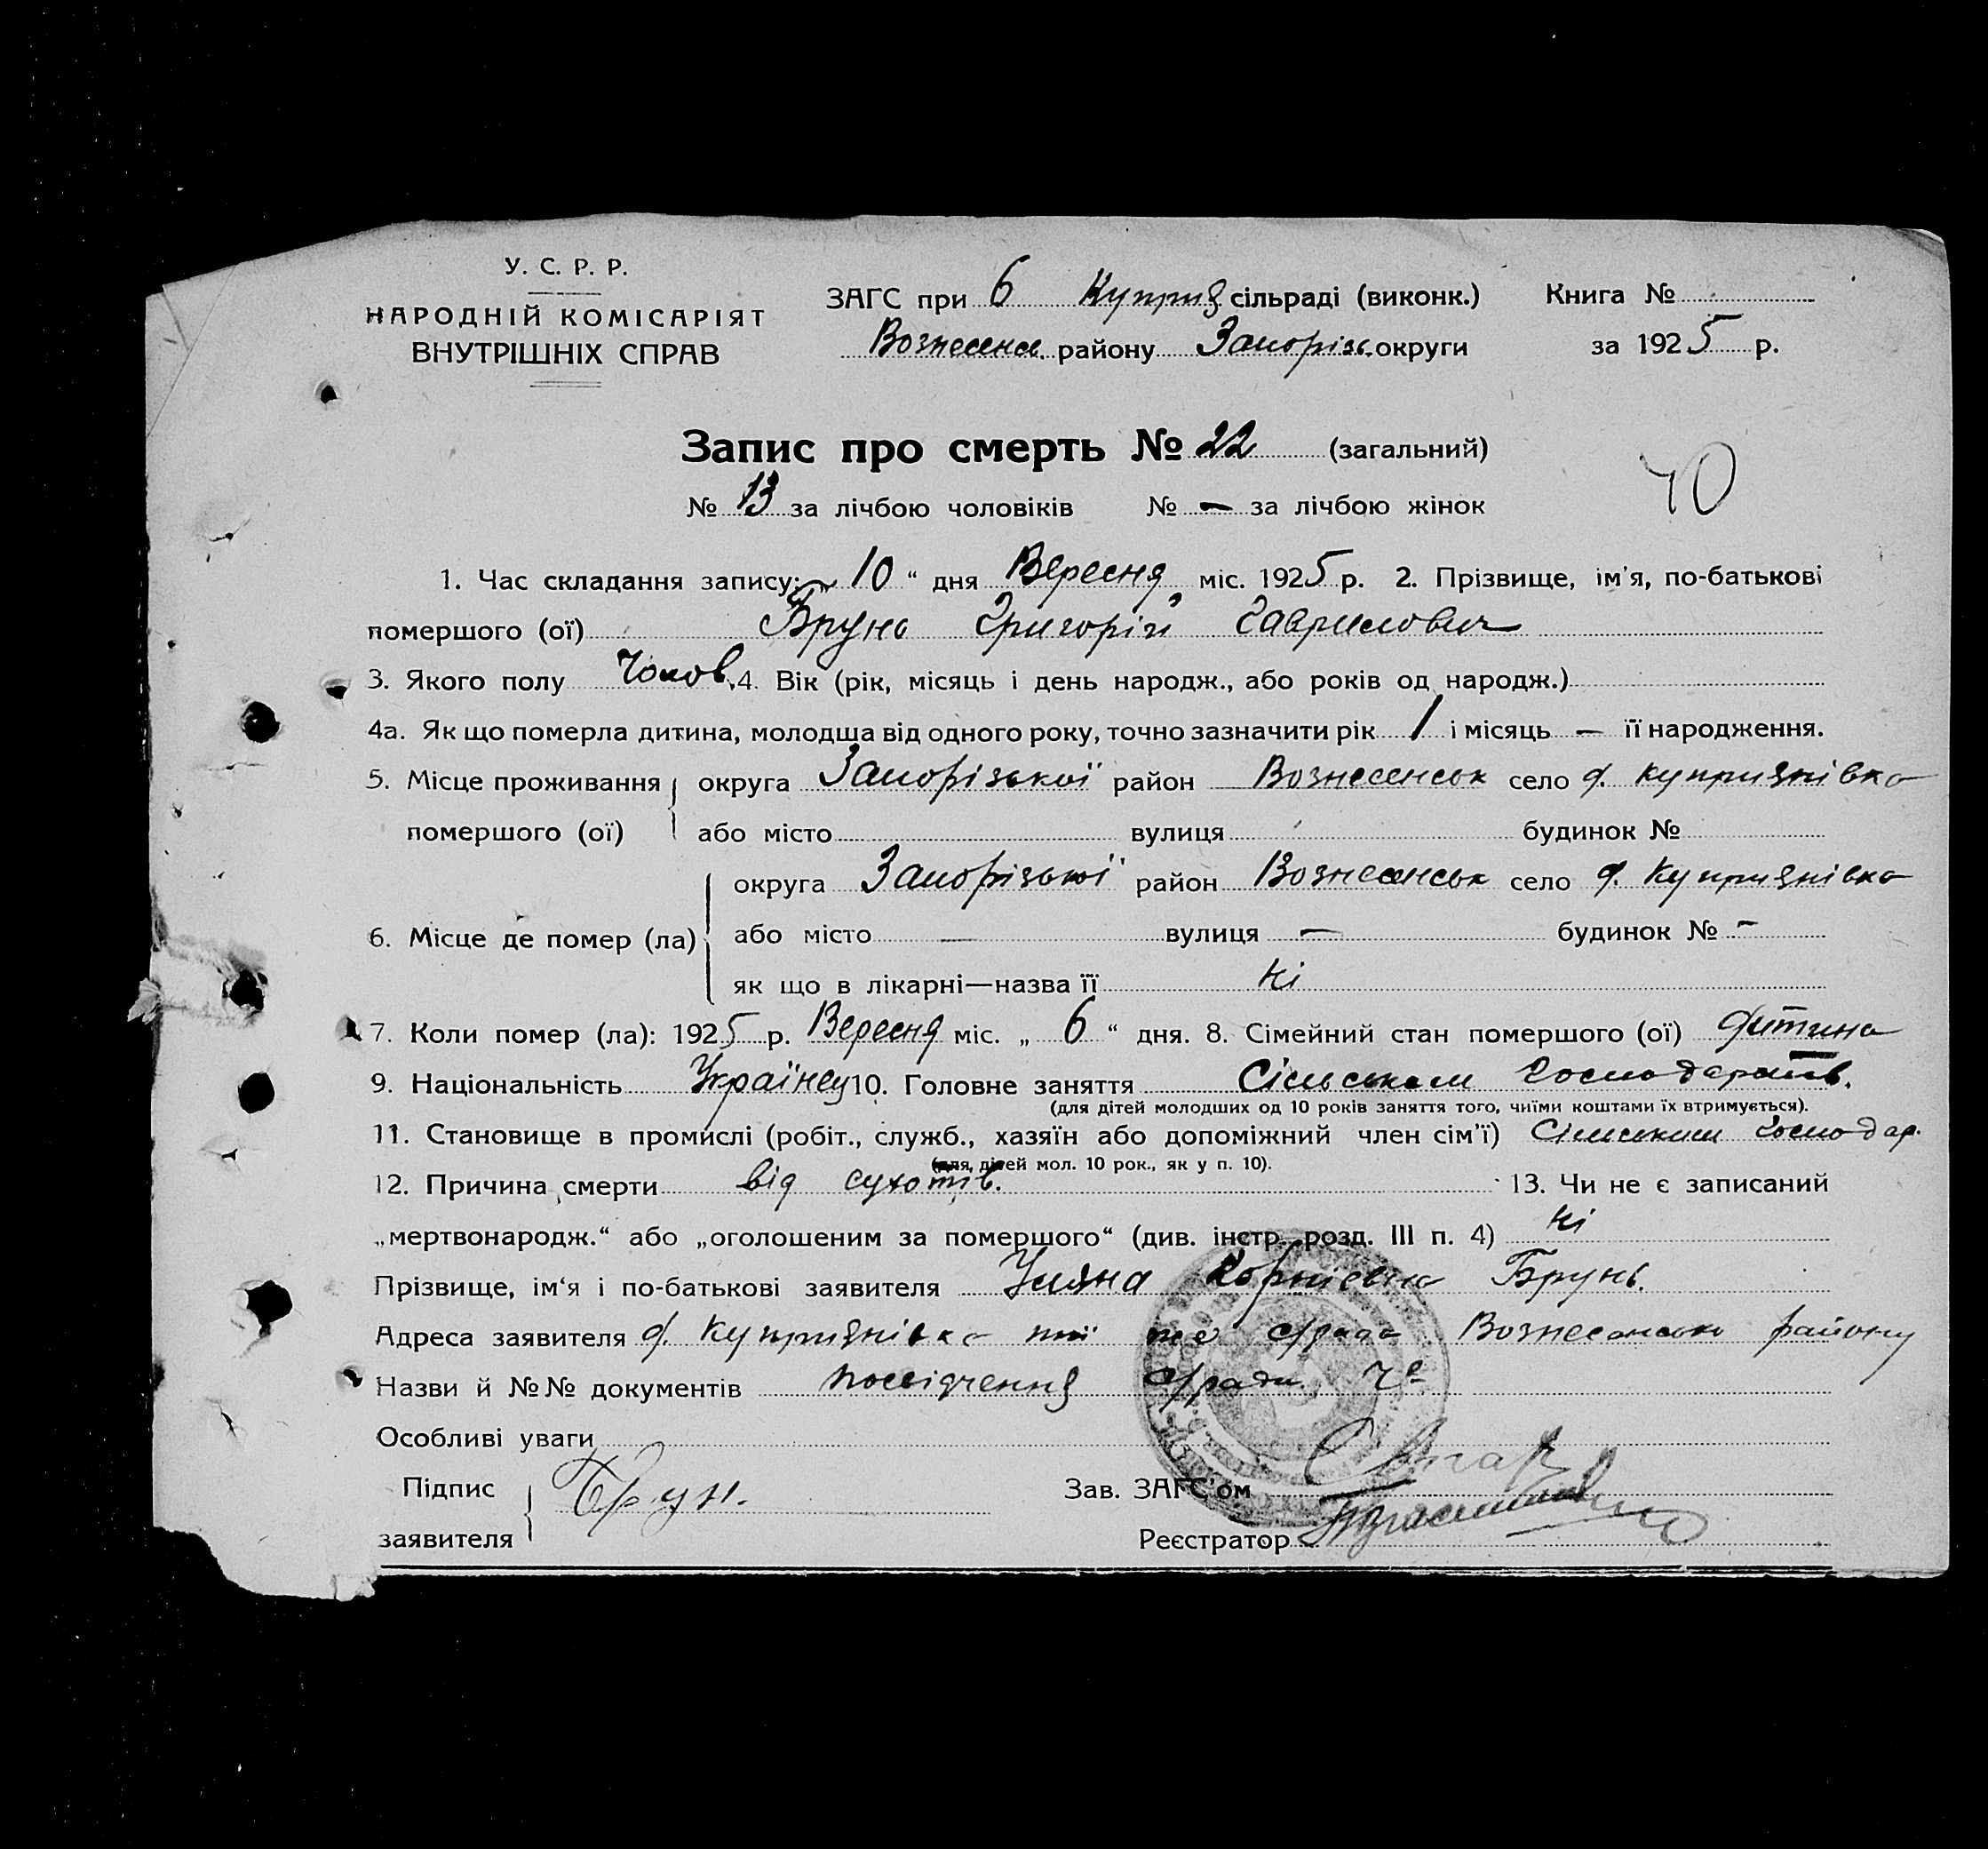 У. С. Р. Р.
НАРОДНІЙ КОМІСАРІЯТ
ВНУТРІШНІХ СПРАВ
ЗАГС при 6 Куприя сільраді (виконк.) Книга №
Вознесенс. району Запорізь. округи за 1925 р.
Запис про смерть № 22 (загальний)
40
№ 13 за лічбою чоловіків № — за лічбою жінок
1. Час складання запису: „ 10 “ дня Вересня міс. 1925 р. 2. Прізвище, ім'я, по-батькові
помершого (ої) Брунь Григорій Гаврилович
3. Якого полу Чолов. 4. Вік (рік, місяць і день народж., або років од народж.)
4а. Як що померла дитина, молодша від одного року, точно зазначити рік 1 і місяць — її народження.
5. Місце проживання округа Запорізької район Вознесенськ село д. Куприянівка
помершого (ої) або місто вулиця будинок №
округа Запорізької район Вознесенськ село д. Куприянівка
6. Місце де помер (ла) або місто — вулиця — будинок № —
як що в лікарні—назва її Ні
7. Коли помер (ла): 1925 р. Вересня міс. „ 6 “ дня. 8. Сімейний стан помершого (ої) дитина
9. Національність Українец 10. Головне заняття Сільськам Господарств.
(для дітей молодших од 10 років заняття того, чиїми коштами їх втримується).
11. Становище в промислі (робіт., служб., хазяїн або допоміжний член сім'ї) Сільським Господар.
(для дітей мол. 10 рок., як у п. 10).
12. Причина смерти від сухотів. 13. Чи не є записаний
„мертвонародж.“ або „оголошеним за помершого“ (див. інстр. розд. III п. 4) Ні
Прізвище, ім'я і по-батькові заявителя Уляна Корніевна Брунь.
Адреса заявителя д. Куприянівка тії же с/рада Вознесенсько району
Назви й №№ документів посвідчення с/ради
Особливі уваги
Підпис заявителя Брун.
Зав. ЗАГС'ом
Реєстратор